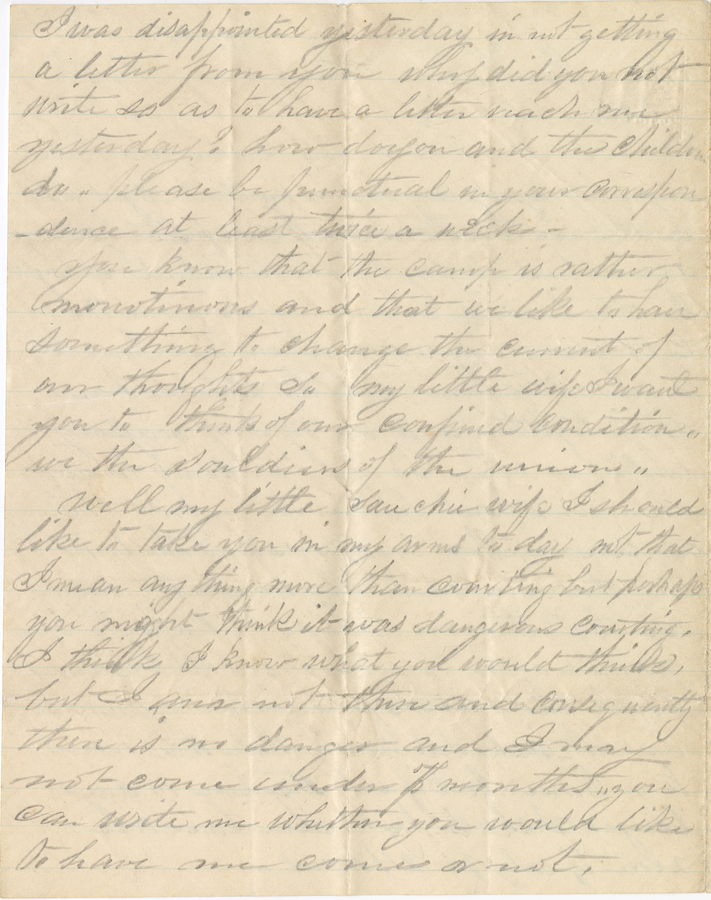 I was disappointed yesterday in not getting
a letter from you why did you not
write so as to have a letter reach me
yesterday? how do you and the children
do. please be punctual in your correspon
-dence at least twice a week -
you know that the camp is rather
monotinous and that we like to have
something to change the current of
our thoughts so my little wife I want
you to think of our confined condition „
we the souldiers of the union „
well my little sauchie wife I should
like to take you in my arms to day not that
I mean any thing more than courting but perhaps
you might think it was dangerous courting.
I think I know what you would think,
but I am not there and consequently
there is no danger and I may
not come under months „ you
can write me whether you would like
to have me come or not.